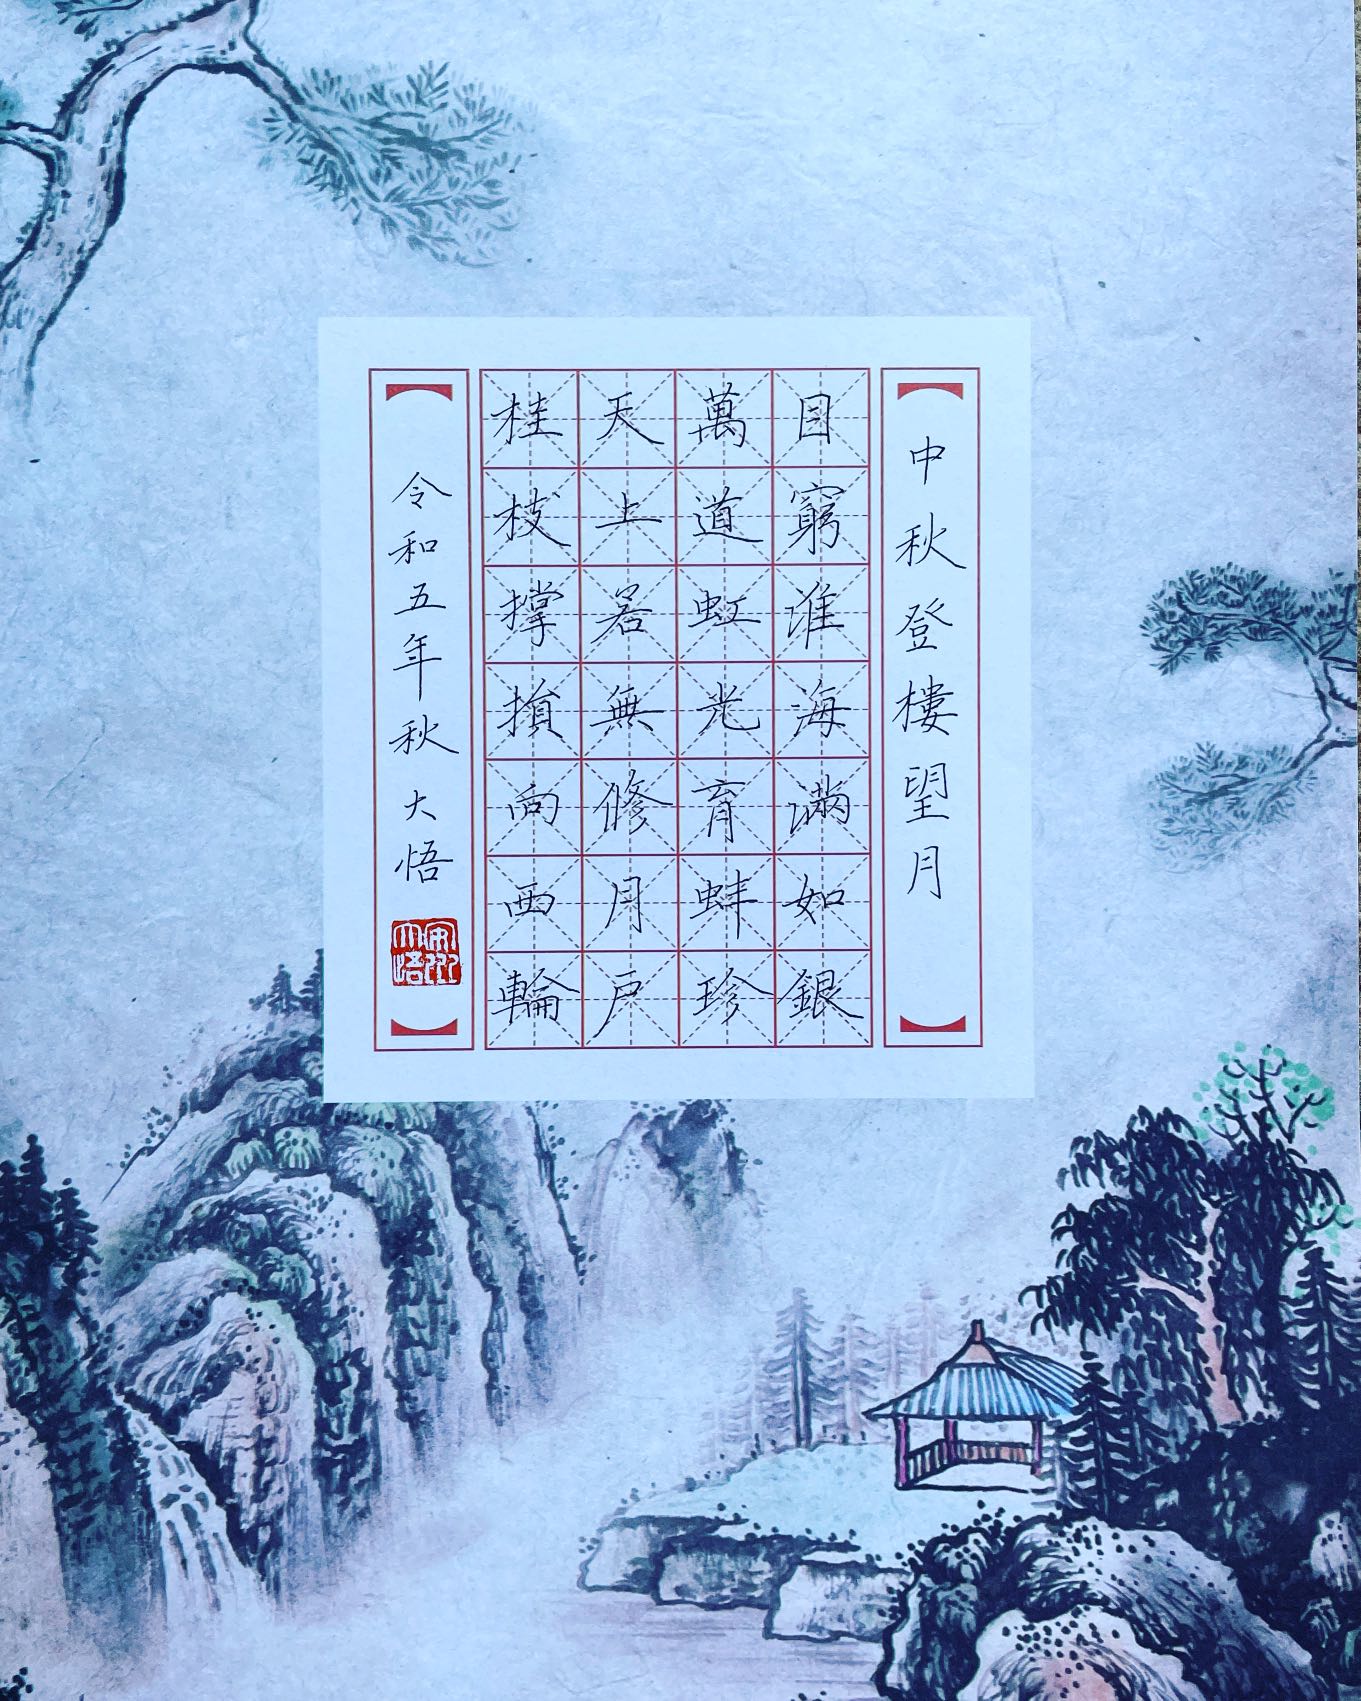 中秋登樓望月
目窮淮海滿如銀
萬道虹光育蚌珍
天上若無修月戶
桂枝撑損向西輪
令和五年秋 大悟